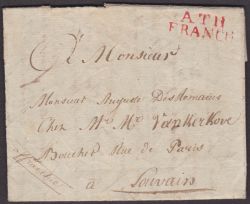 ATH
FRANCO
A Monsieur
Monsieur Auguste
Chez Mr. Mr. Vankerkove
Boucher Rue de Paris
a Louvain